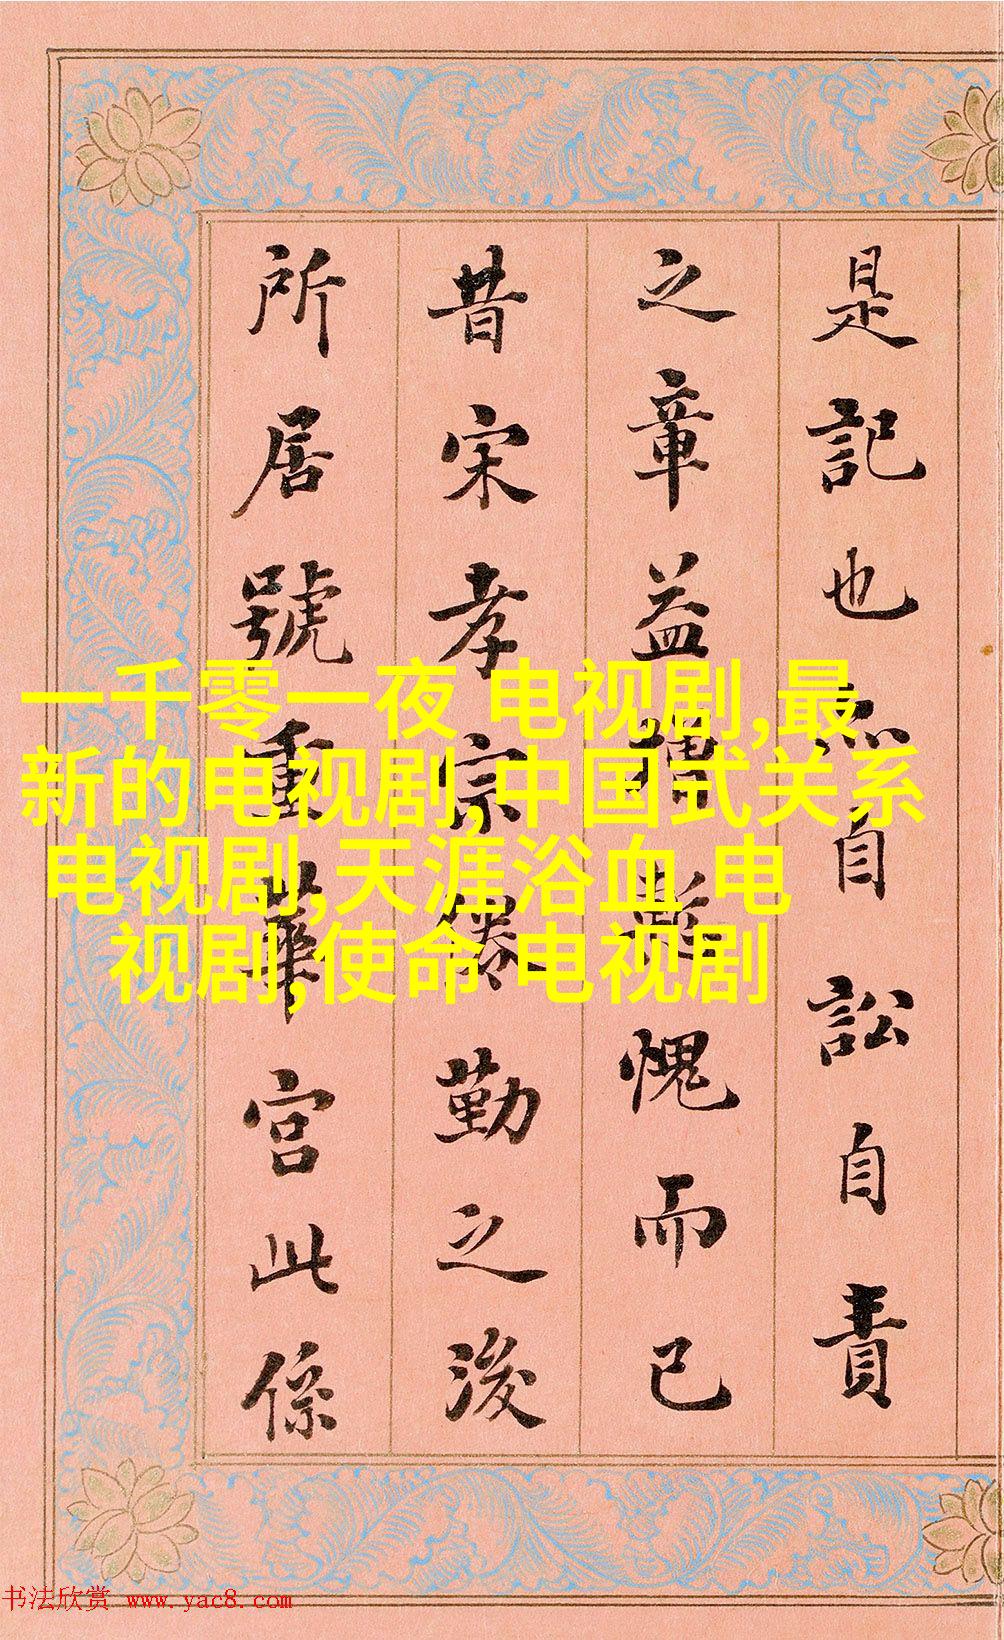 是記也無自訟自責
之章益增慙愧而已
昔宋孝宗倦勤之後
所居號重華宮此係
一千零一夜 电视剧,最
新的电视剧,中国式关系
电视剧,天涯浴血 电
视剧,使命 电视剧
书法欣赏 www.yac8.com